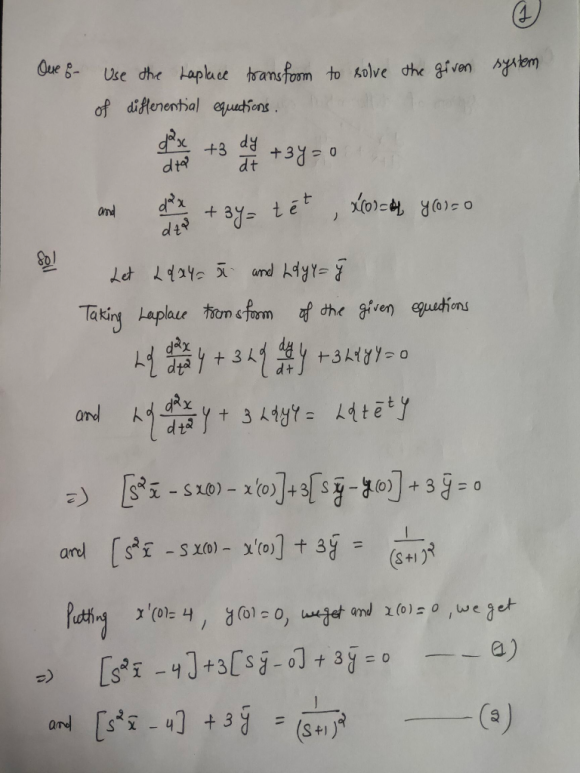 (1)
Que :- Use the Laplace transform to solve the given system
of differential equations.
d²x/dt² + 3 dy/dt + 3y = 0
and d²x/dt² + 3y = t e^-t , x'(0)=4, y(0)=0
Sol
Let L{x} = x̄ and L{y} = ȳ
Taking Laplace transform of the given equations
L{d²x/dt²} + 3L{dy/dt} + 3L{y} = 0
and L{d²x/dt²} + 3L{y} = L{t e^-t}
=> [s²x̄ - sx(0) - x'(0)] + 3[sȳ - y(0)] + 3ȳ = 0
and [s²x̄ - sx(0) - x'(0)] + 3ȳ = 1/(s+1)²
Putting x'(0)=4, y(0)=0, and x(0)=0, we get
=> [s²x̄ - 4] + 3[sȳ - 0] + 3ȳ = 0 —— 1)
and [s²x̄ - 4] + 3ȳ = 1/(s+1)² —— (2)